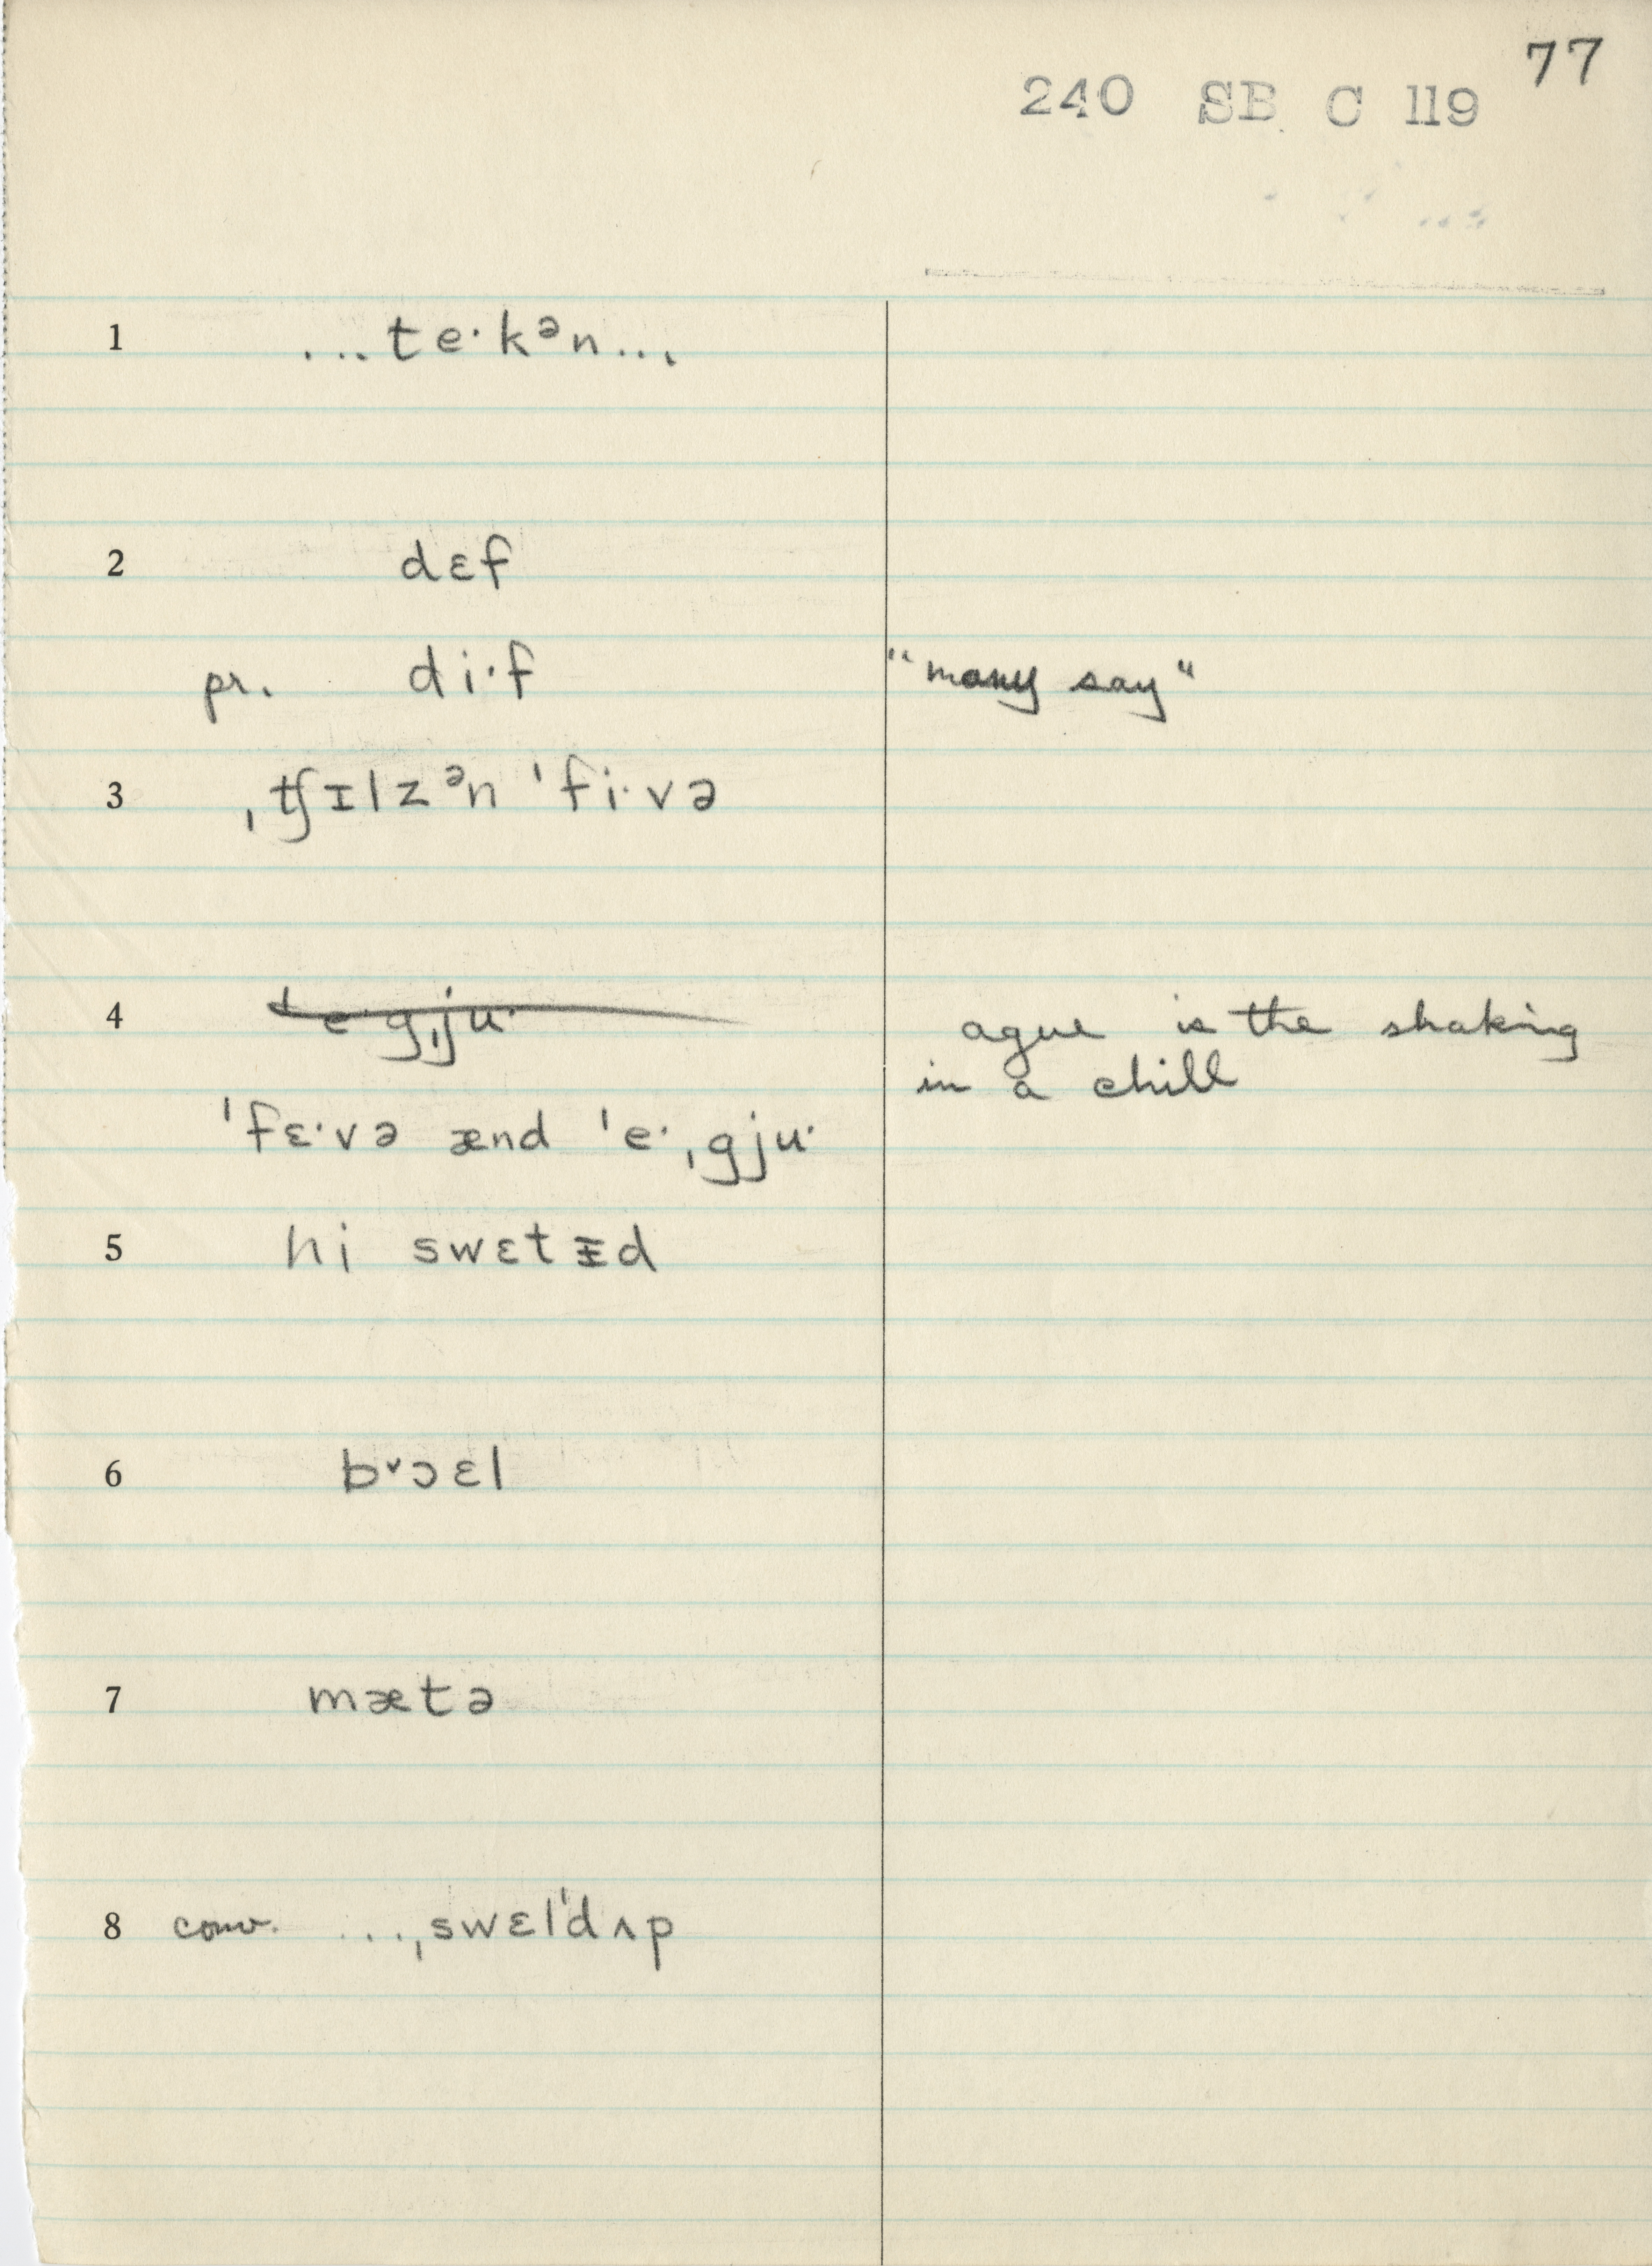 77
240 SB C 119
1 ...te·kᵊn...
2 dɛf
pr. di·f "many say"
3 ˌtʃɪlzᵊn ˈfi·və
4 ˈe·gˌju· ague is the shaking
in a chill
ˈfɛ·və ænd ˈe·ˌgju·
5 hi swɛtᵻd
6 b˅ɔɛl
7 mætə
8 conv. ...ˌswɛlˈdʌp